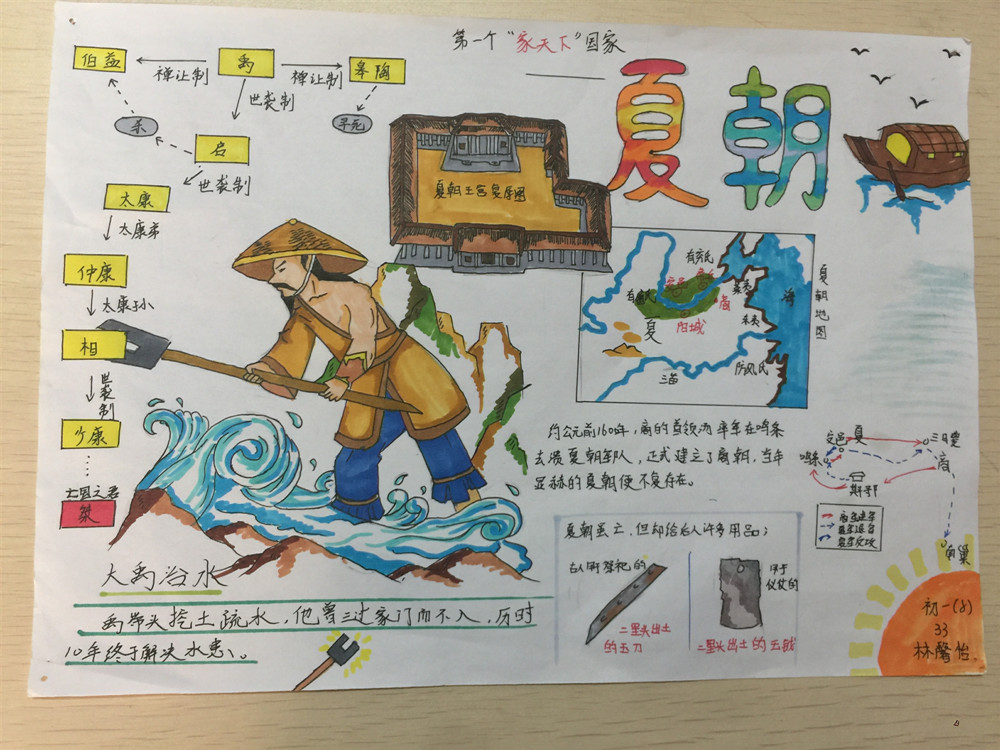 第一个“家天下”国家
夏朝
伯益
禅让制
禹
禅让制
皋陶
世袭制
杀
早死
启
世袭制
太康
太康弟
仲康
太康子
相
世袭制
少康
……
亡国之君
桀
夏朝王宫复原图
有穷氏
有扈氏
夏
阳城
商
莱夷
海
三苗
防风氏
夏朝地图
约公元前160年，商的首领汤率军在鸣条
击溃夏朝军队，正式建立了商朝，当年
显赫的夏朝便不复存在。
夏
鸣条
商
斯鄩
南巢
夏朝虽亡，但却给后人许多用品：
古人用祭祀的
二里头出土
的玉刀
用于
仪仗的
二里头出土的玉钺
大禹治水
禹带头挖土疏水，他曾三过家门而不入，历时
10年终于解决水患、。
初一(8)
33
林馨怡